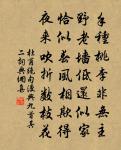 手種桃李非無主
野老墻低還似家
恰似春風相欺得
夜來吹折數枝花
杜甫絶句漫興九首其
二詞典網集